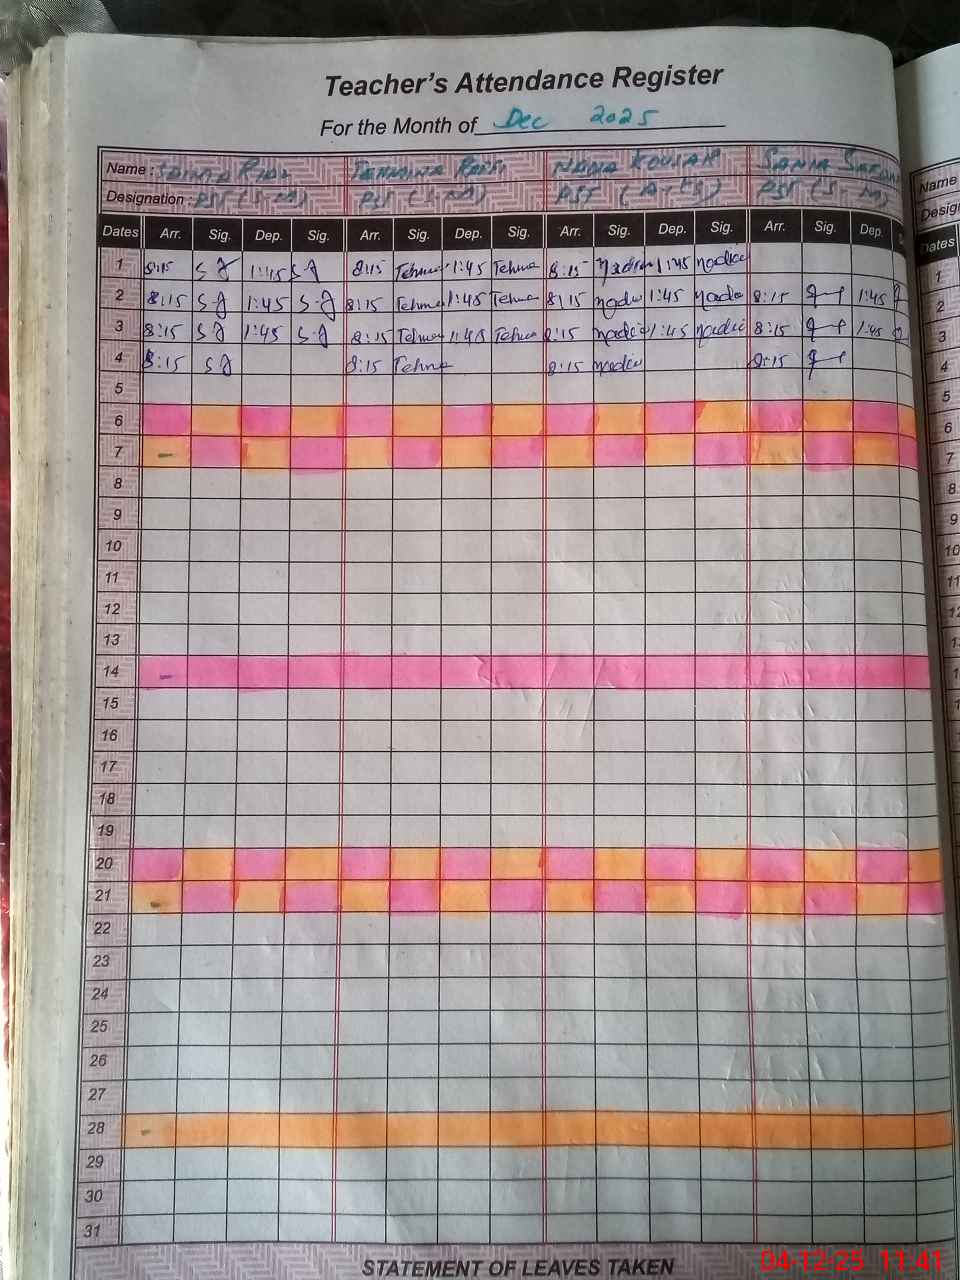 Teacher's Attendance Register
For the Month of Dec 2025
Name : Saima Riaz Tehmina Rafi Nadia Kousar Sania
Designation : PST (S-M) PST (S-M) PST PST (S-M)
Dates Arr. Sig. Dep. Sig. Arr. Sig. Dep. Sig. Arr. Sig. Dep. Sig. Arr. Sig. Dep.
1 8:15 1:45 8:15 Tehmi 1:45 Tehmi 8:15 Nadia 1:45 Nadia
2 8:15 1:45 8:15 Tehmi 1:45 Tehmi 8:15 Nadia 1:45 Nadia 8:15 1:45
3 8:15 1:45 8:15 Tehmi 1:45 Tehmi 8:15 Nadia 1:45 Nadia 8:15 1:45
4 8:15 8:15 Tehmi 8:15 Nadia 8:15
5
6
7
8
9
10
11
12
13
14
15
16
17
18
19
20
21
22
23
24
25
26
27
28
29
30
31
STATEMENT OF LEAVES TAKEN
Name
Dates
1
2
3
4
5
6
7
8
9
10
11
04-12-25 11:41